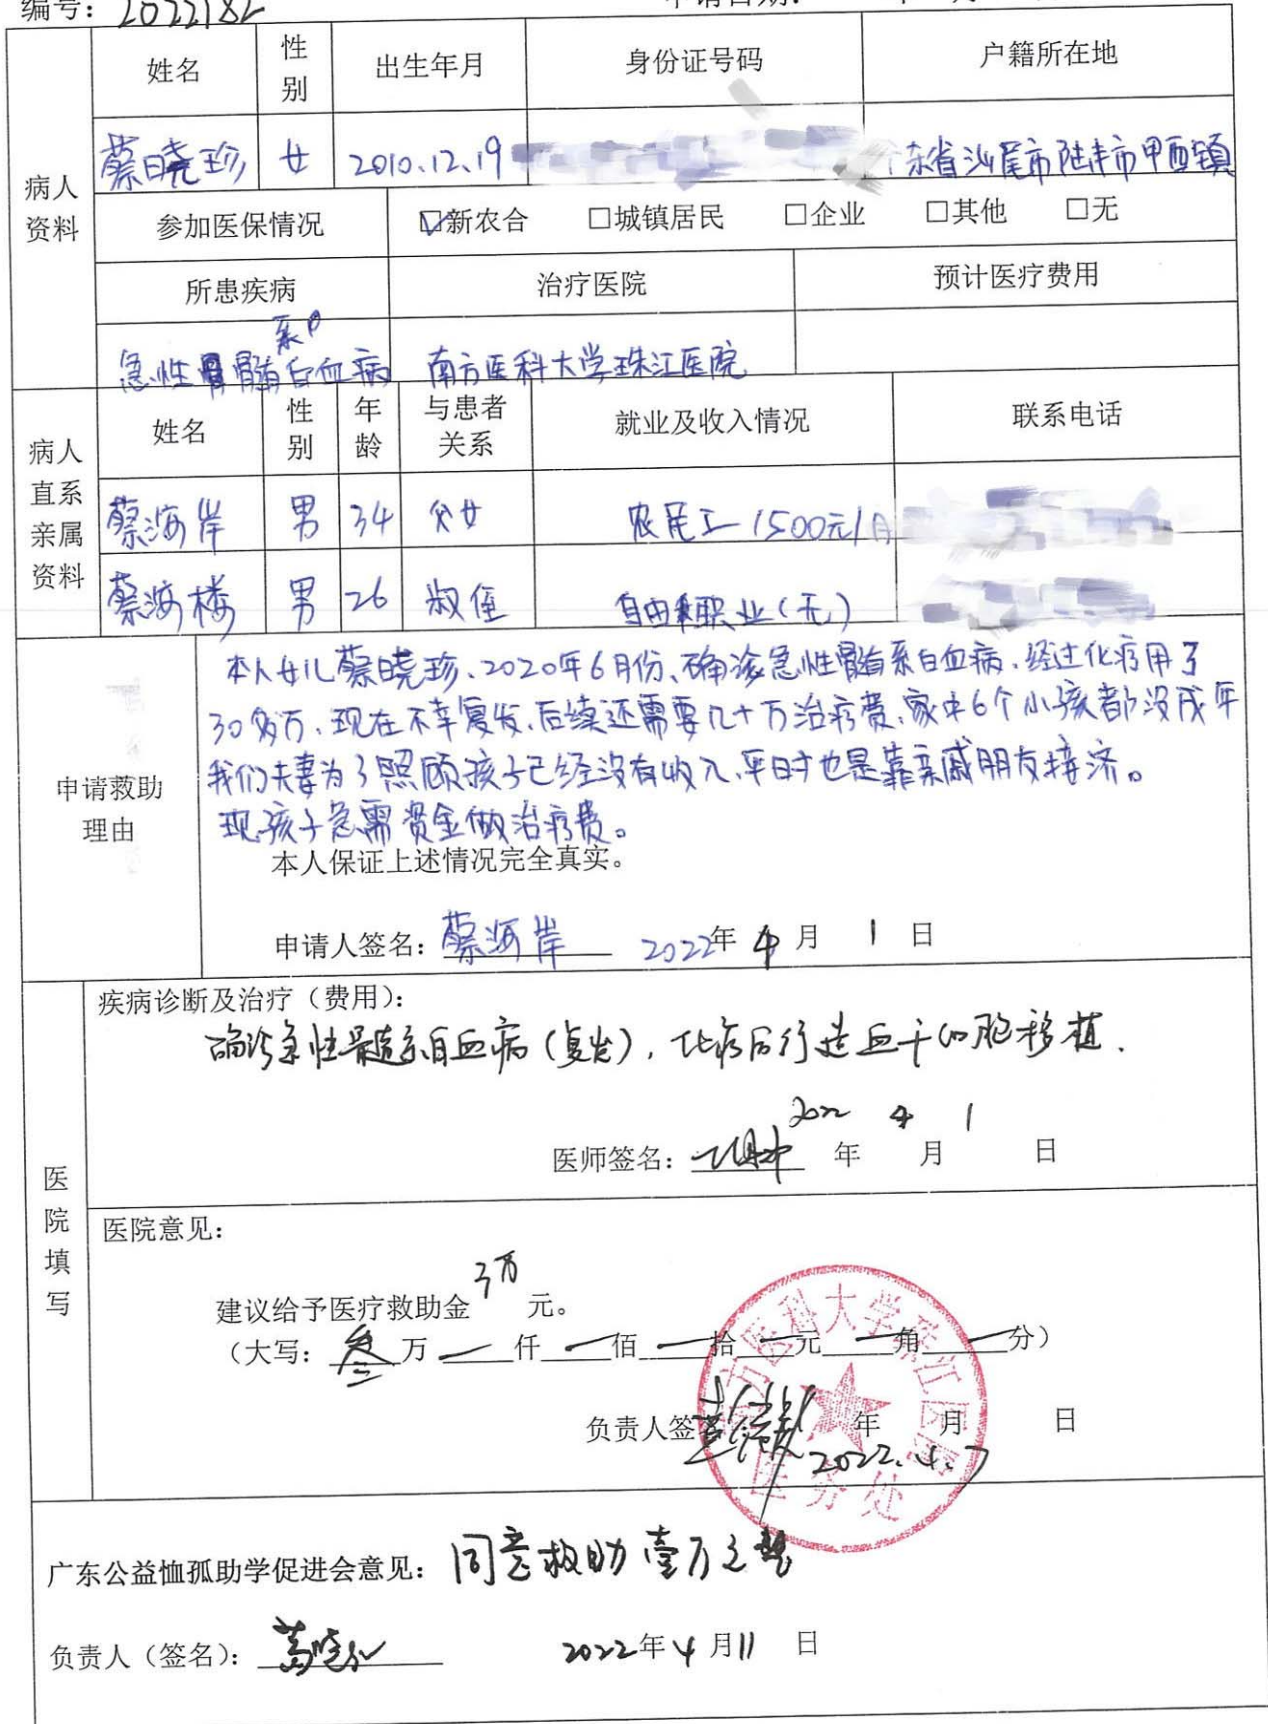 编号：2022182
姓名 性别 出生年月 身份证号码 户籍所在地
病人资料
蔡晓珍 女 2010.12.19 东省汕尾市陆丰市甲西镇
参加医保情况 ☑新农合 □城镇居民 □企业 □其他 □无
所患疾病 治疗医院 预计医疗费用
急性髓系白血病 南方医科大学珠江医院
病人直系亲属资料
姓名 性别 年龄 与患者关系 就业及收入情况 联系电话
蔡海岸 男 34 父女 农民工 1500元/月
蔡海楼 男 26 叔侄 自由职业（无）
申请救助理由
本人女儿蔡晓珍、2020年6月份、确诊急性髓系白血病、经过化疗用了
30多万、现在不幸复发、后续还需要几十万治疗费、家中6个小孩都没成年
我们夫妻为了照顾孩子已经没有收入、平时也是靠亲戚朋友接济。
现孩子急需资金做治疗费。
本人保证上述情况完全真实。
申请人签名：蔡海岸 2022年4月1日
医院填写
疾病诊断及治疗（费用）：
确诊急性髓系白血病（复发），化疗后行造血干细胞移植.
医师签名： 2022年4月1日
医院意见：
建议给予医疗救助金3万元。
（大写：叁万一仟一佰一拾一元一角一分）
负责人签 年 月 日
2022.4.7
南方医科大学珠江医院
医务处
广东公益恤孤助学促进会意见：同意救助壹万元整
负责人（签名）： 2022年4月11日